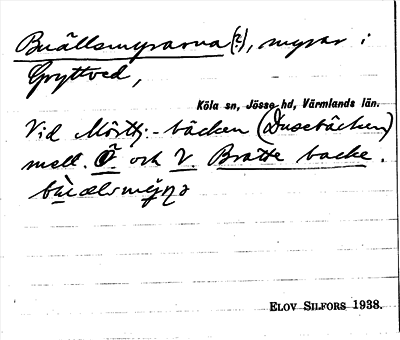 Buällsmyrarna (?), myrar i
Gryttved,
Köla sn, Jösse hd, Värmlands län.
Vid Mörttj.-bäcken (Dusebäcken)
mell. Ö. och V. Bratte backe.
ELOV SILFORS 1938.